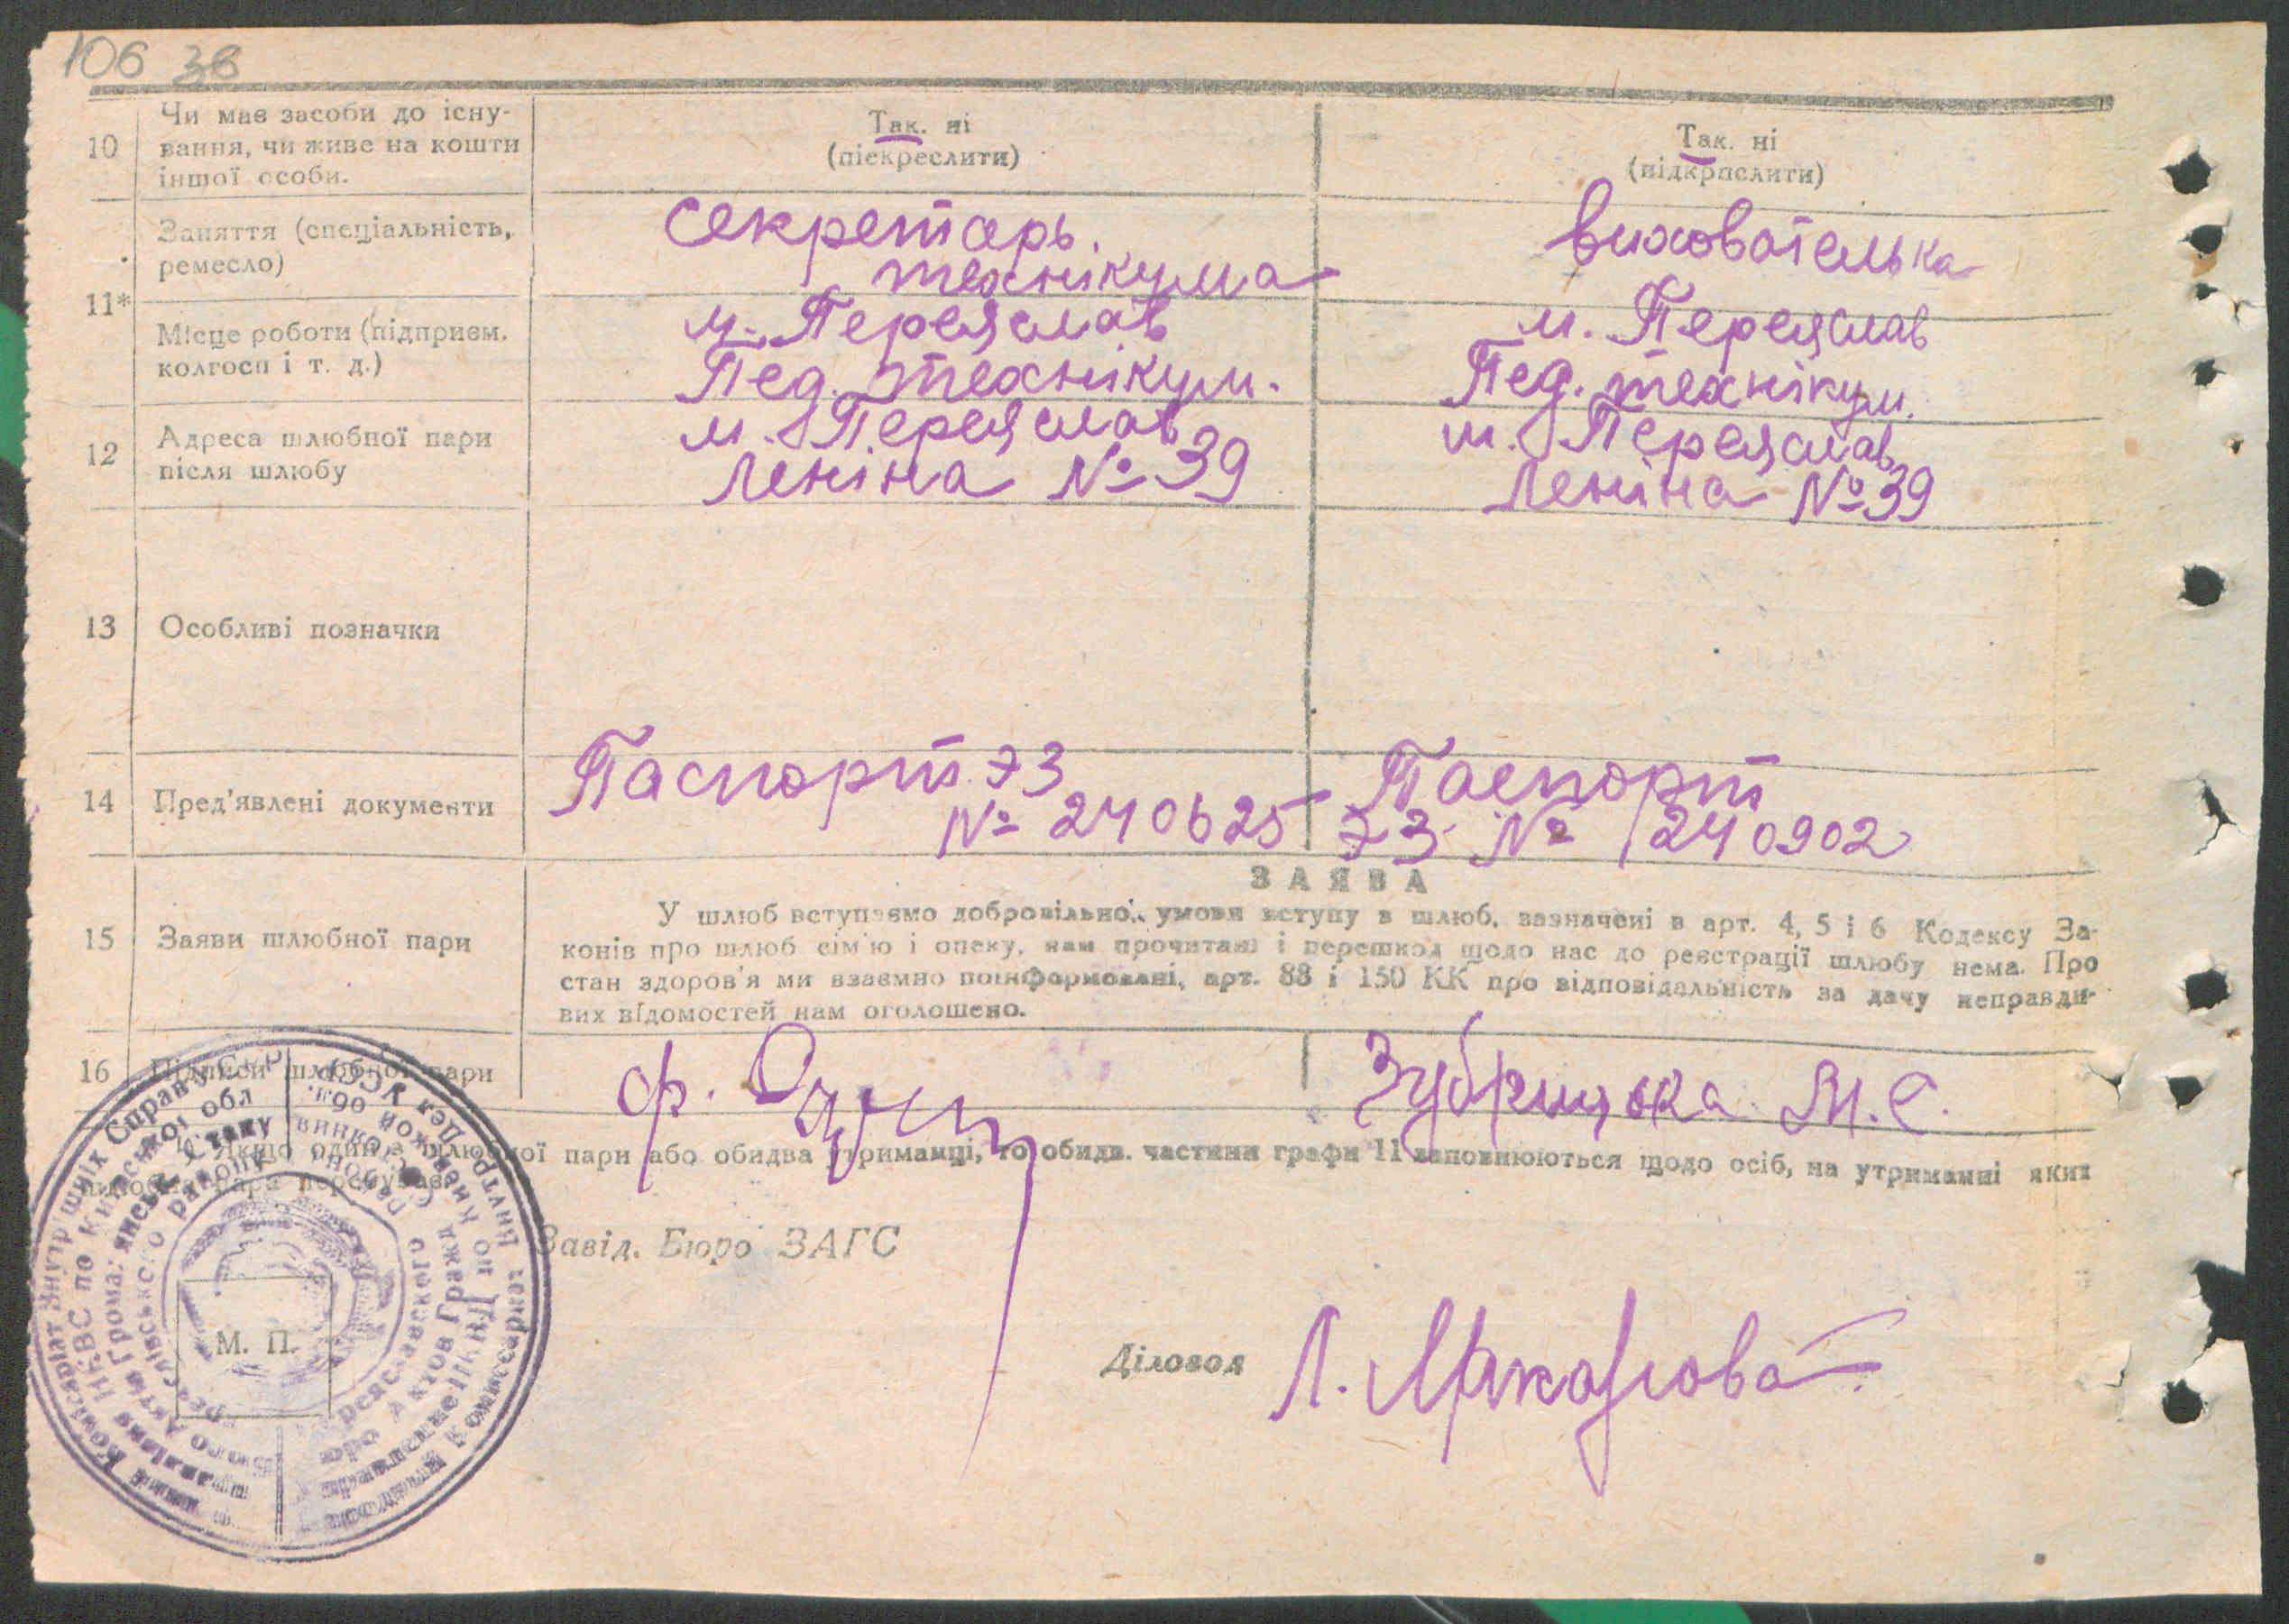 106 зв
10
Чи має засоби до існу-
вання, чи живе на кошти
іншої особи.
Так. ні
(піекреслити)
Так. ні
(підкрпслити)
11*
Заняття (спеціальність,
ремесло)
секретарь.
технікума
вихователька
Місце роботи (підприєм.
колгосп і т. д.)
м. Переяслав
Пед. технікум.
м. Переяслав
Пед. технікум.
12
Адреса шлюбної пари
після шлюбу
м. Переяслав
Леніна № 39
м. Переяслав
Леніна № 39
13
Особливі позначки
14
Пред'явлені документи
Паспорт ЭЗ
№ 240625
Паспорт
ЭЗ № 240902
15
Заяви шлюбної пари
ЗАЯВА
У шлюб вступаємо добровільно, умови вступу в шлюб, зазначені в арт. 4, 5 і 6 Кодексу За-
конів про шлюб сім'ю і опеку, нам прочитані і перешкод щодо нас до реєстрації шлюбу нема. Про
стан здоров'я ми взаємно поінформовані, арт. 88 і 150 КК про відповідальність за дачу неправди-
вих відомостей нам оголошено.
16
Підписи шлюбної пари
ф.
Зубрицька М. С.
Якщо один з шлюбної пари або обидва утриманці, то обидв. частини графи 11 заповнюються щодо осіб, на утриманні яких
шлюбна пара перебуває
Завід. Бюро ЗАГС
М. П.
Діловод
Л. Макарова